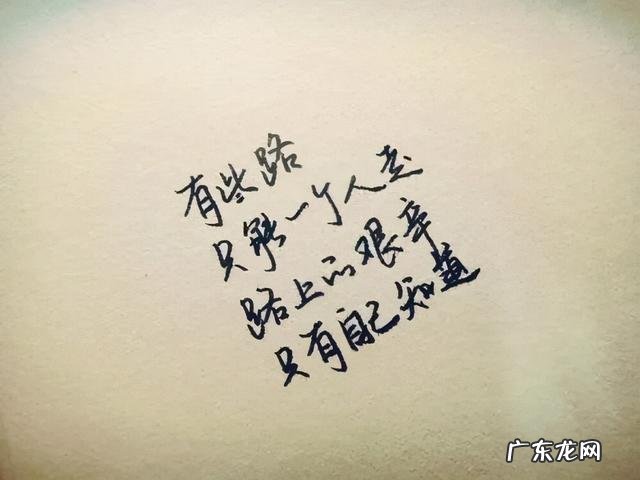 有些路
只能一个人走
路上的艰辛
只有自己知道
广东龙网